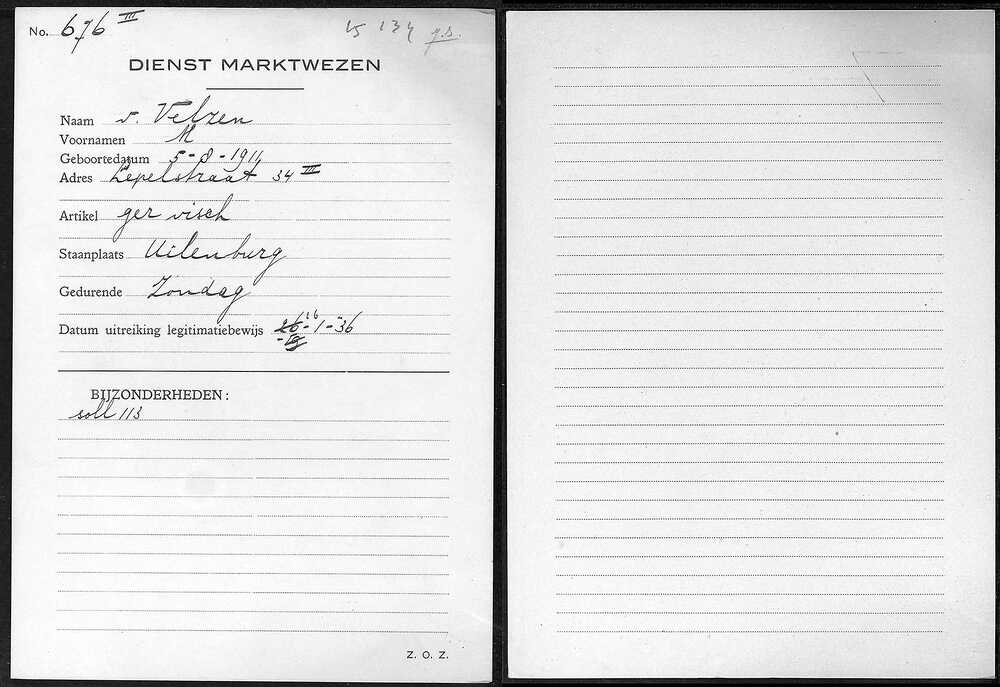 No. 676 III
15 134 g.s.
DIENST MARKTWEZEN
Naam v. Velzen
Voornamen M
Geboortedatum 5-8-1911
Adres Lepelstraat 34 III
Artikel ger visch
Staanplaats Uilenburg
Gedurende Zondag
Datum uitreiking legitimatiebewijs 16-1-36
BIJZONDERHEDEN:
soll 113
Z. O. Z.